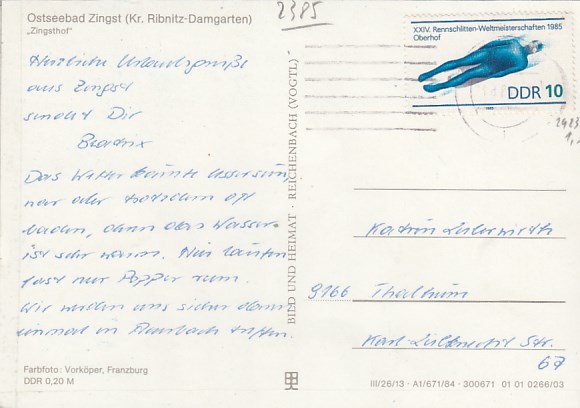 Ostseebad Zingst (Kr. Ribnitz-Damgarten)
„Zingsthof"
2385
XXIV. Rennschlitten-Weltmeisterschaften 1985
Oberhof
DDR 10
1985
Herzliche Urlaubsgrüße
aus Zingst
sendet Dir
Beatrix
Das Wetter könnte besser sein,
wir aber trotzdem oft
baden, denn das Wasser
ist sehr warm. Hier laufen
fast nur Popper rum.
Wir werden uns sicher dann
einmal in Auerbach treffen.
BILD UND HEIMAT · REICHENBACH (VOGTL)
Katrin
9166 Thalheim
Karl-Liebknecht Str.
67
Farbfoto: Vorköper, Franzburg
DDR 0,20 M
III/26/13 · A1/671/84 · 300671 01 01 0266/03